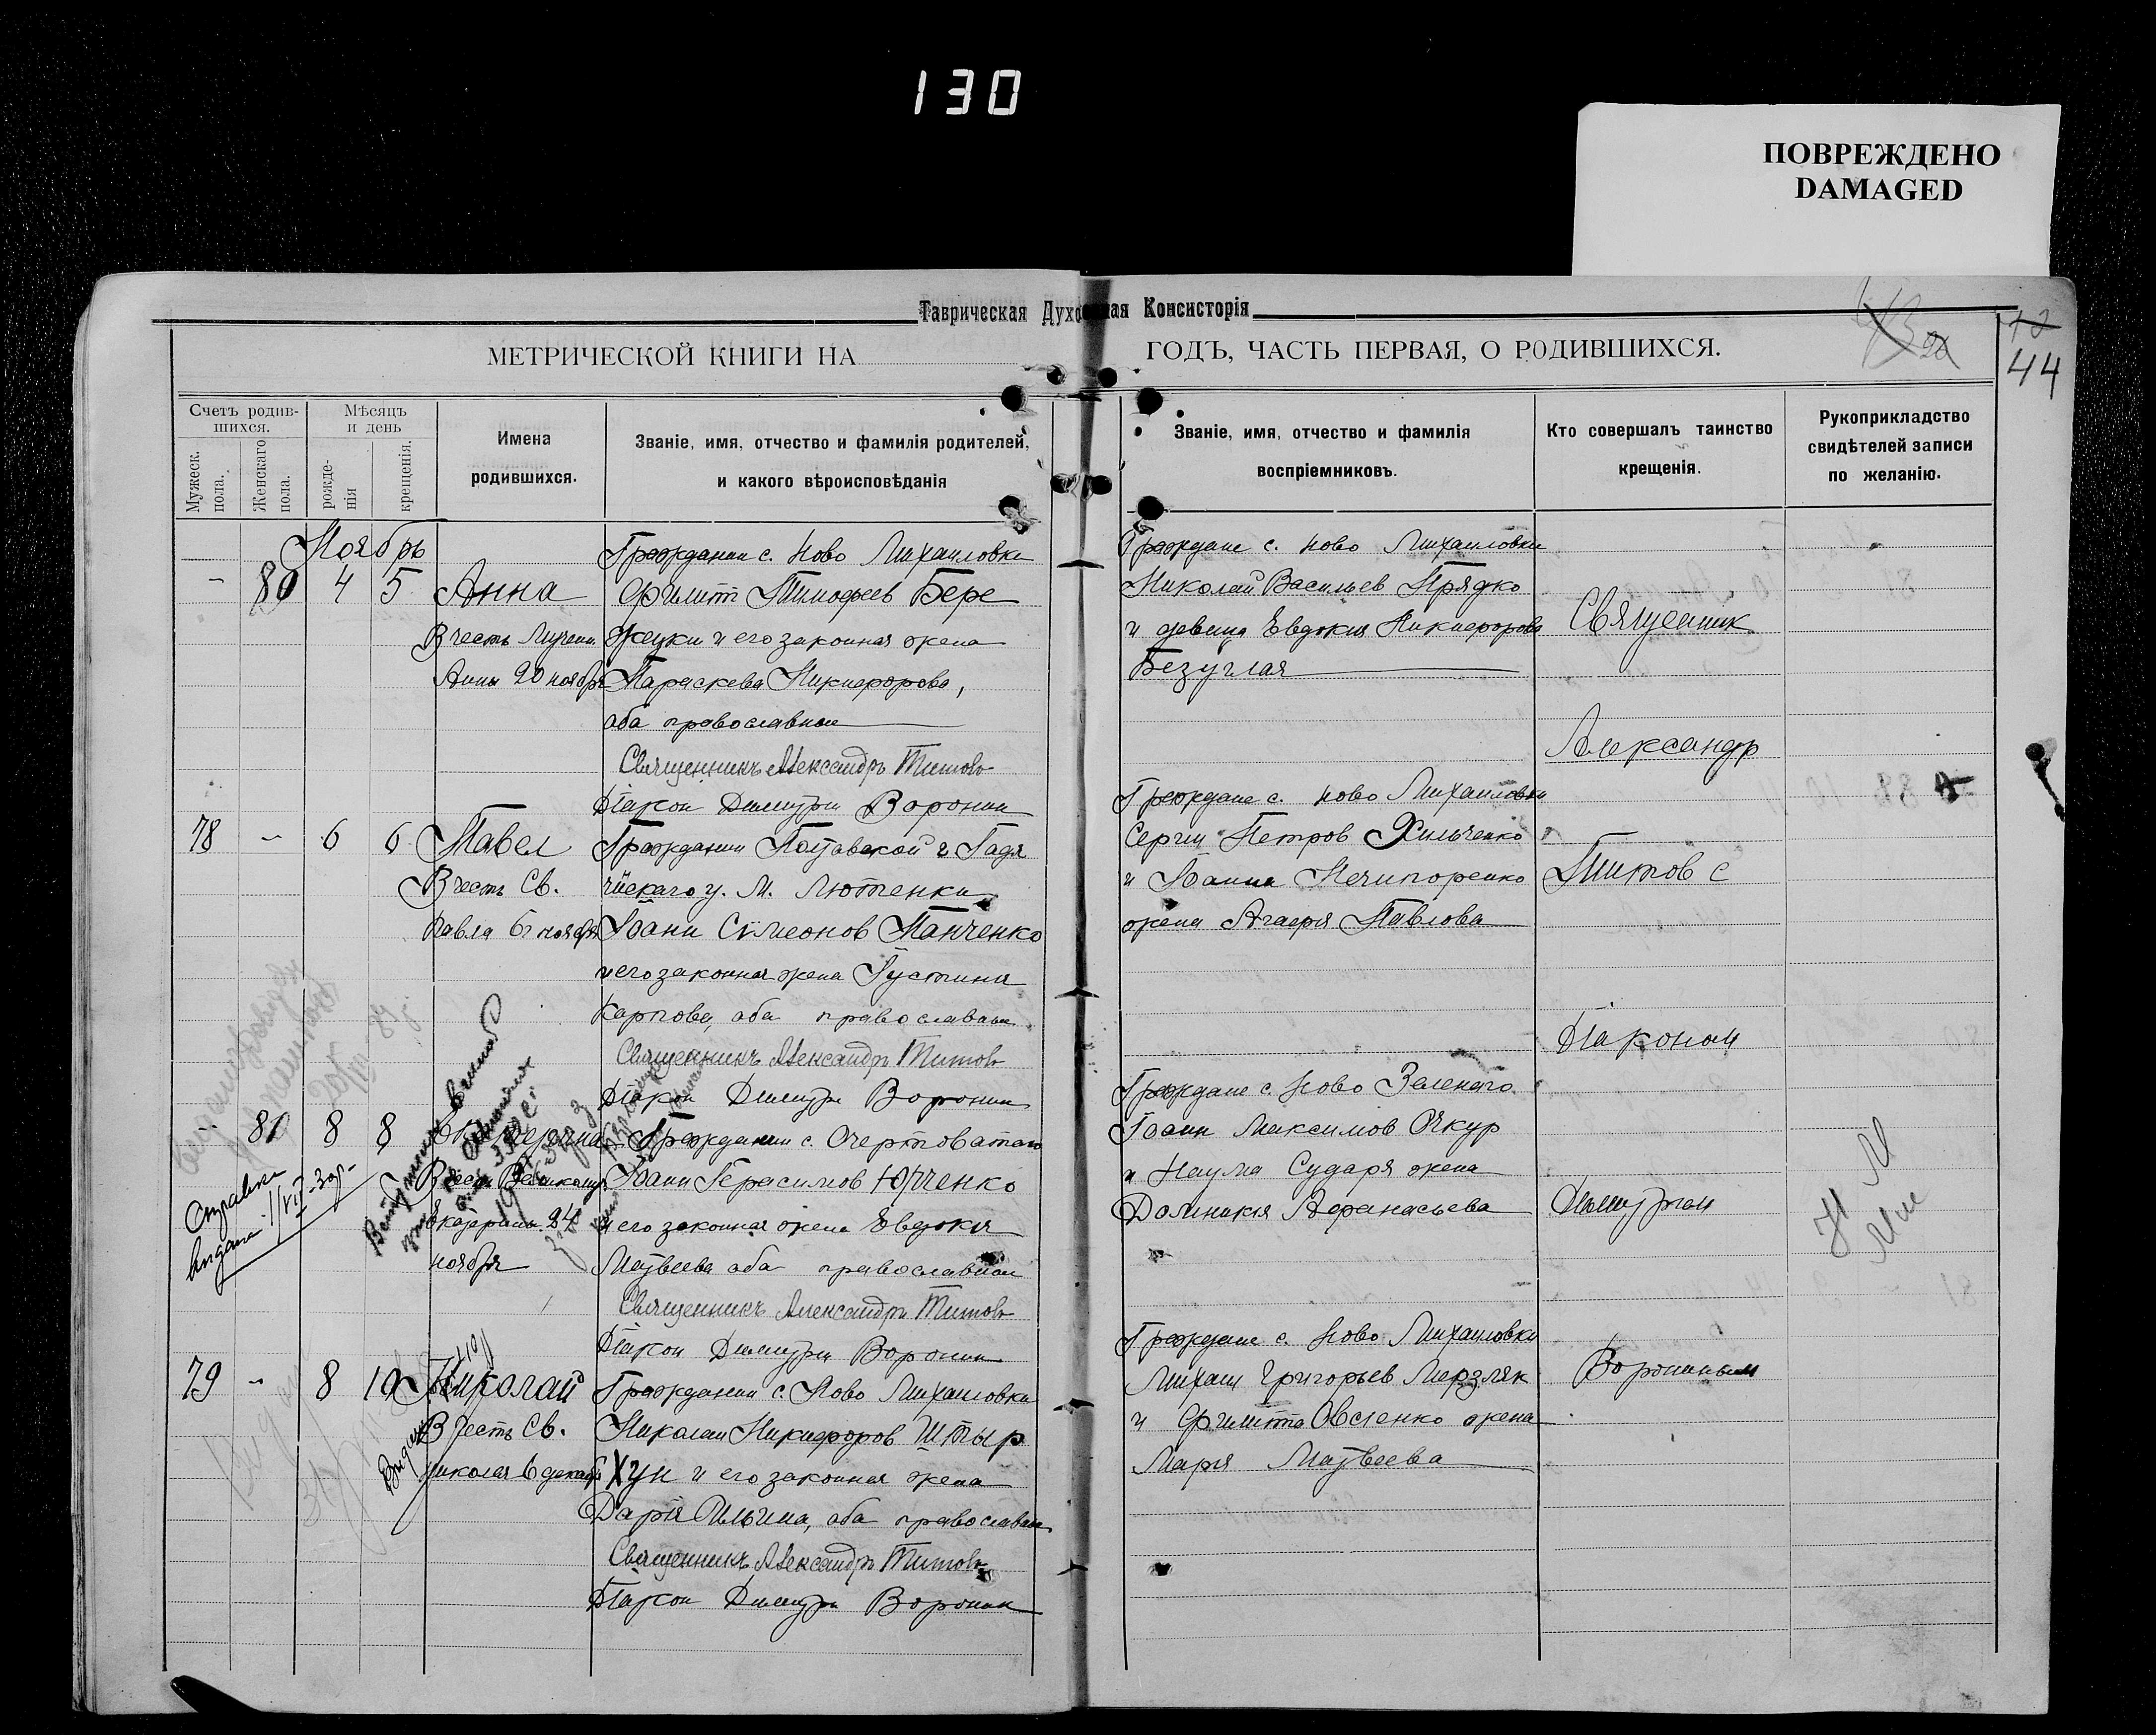 130
ПОВРЕЖДЕНО
DAMAGED
Таврическая Духовная Консисторія
МЕТРИЧЕСКОЙ КНИГИ НА
ГОДЪ, ЧАСТЬ ПЕРВАЯ, О РОДИВШИХСЯ.
44
Счетъ родив-
шихся.
Мѣсяцъ
и день
Мужеск.
пола.
Женскаго
пола.
рожде-
нія
крещенія.
Имена
родившихся.
Званіе, имя, отчество и фамилія родителей,
и какого вѣроисповѣданія
Званіе, имя, отчество и фамилія
воспріемниковъ.
Кто совершалъ таинство
крещенія.
Рукоприкладство
свидѣтелей записи
по желанію.
Ноябрь
80 4 5 Анна
В честь Мучен.
Анны 20 ноября
Гражданин с. Ново Михаиловки
Филипп Тимофеев Бере
жнуки и его законная жена
Параскева Никифорова,
оба православнои
Священникъ Александръ Титовъ
Діакон Димитри Воронин
Граждане с. Ново Михаиловки
Николай Васильев Прядко
и девица Евдокия Никифорова
Безуглая
78 - 6 6 Павел
В честь Св.
Павла 6 ноября
Гражданин Полтавской г Гадя
чйскаго у. М. Лютенки
Іоанн Симеонов Панченко
и его законная жена Густиния
Карпова, оба православнои
Священникъ Александръ Титовъ
Діакон Димитри Воронин
Граждане с. Ново Михаиловки
Сергии Петров Хильченко
и Іоанна Нечипоренко
жена Агафия Павлова
81 8 8 Екатерина
В честь Великомуч.
Екатерины 24
ноября
Гражданин с. Очертоватаго
Іоанн Герасимов Юрченко
и его законная жена Евдокия
Матвеева оба православнои
Священникъ Александръ Титовъ
Діакон Димитри Воронин
Граждане с. Ново Зеленаго
Іоанн Максимов Очкур
и Наума Сударя жена
Домникия Афанасьева
Справка
выдана
79 - 8 10 Николай
В честь Св.
Николая 6 декабр
Гражданин с. Ново Михаиловки
Николаи Никифоров Штыр
хун и его законная жена
Дария Ильина, оба православнои
Священникъ Александръ Титовъ
Діакон Димитри Воронин
Граждане с. Ново Михаиловки
Михаил Григорьев Мерзляк
и Филиппа Овсиенко жена
Мария Матвеева
Священник
Александр
Титов с
Діаконом
Димитрием
Ворониным